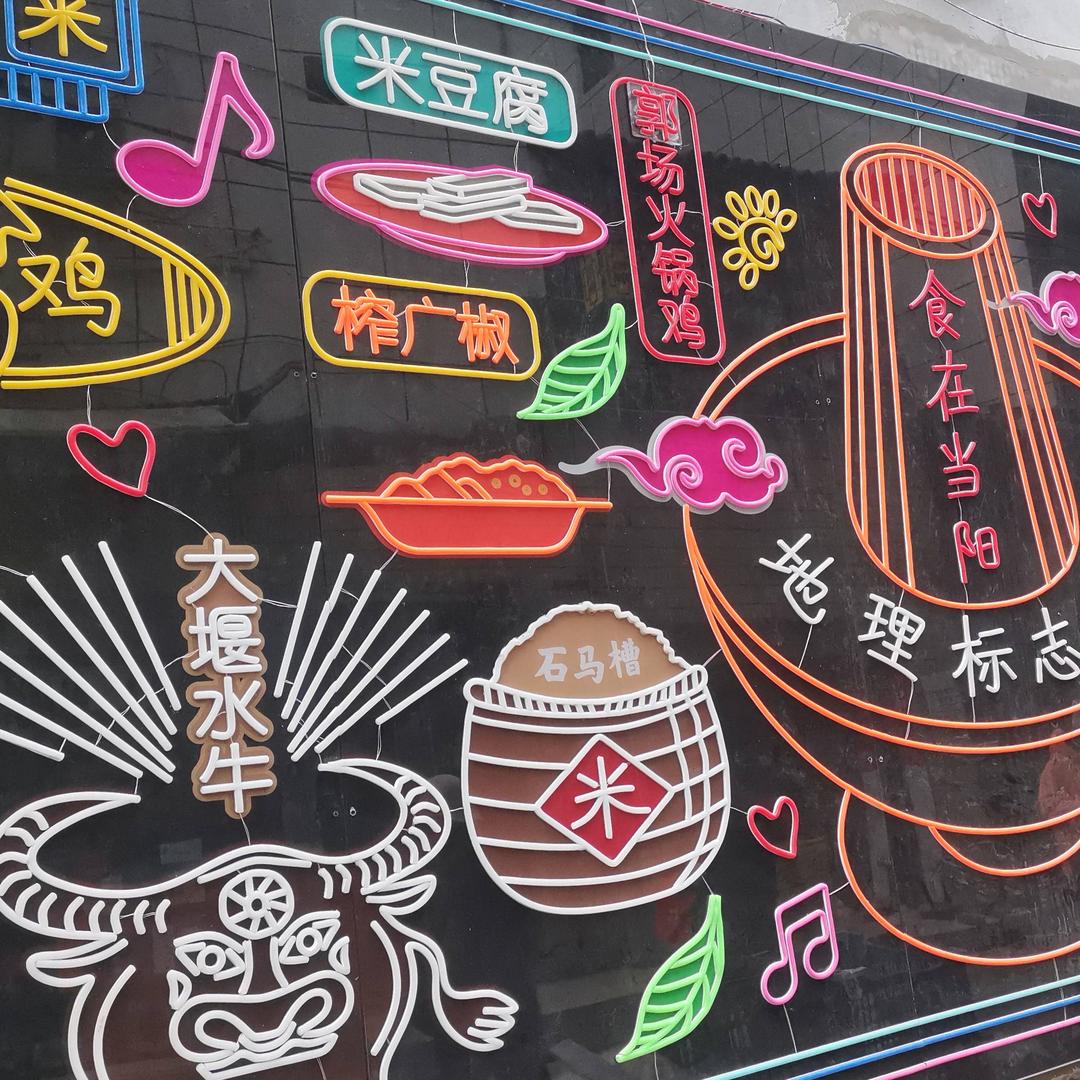 米
米豆腐
郭场火锅鸡
鸡
榨广椒
食在当阳
地理标志
大堰水牛
石马槽
米